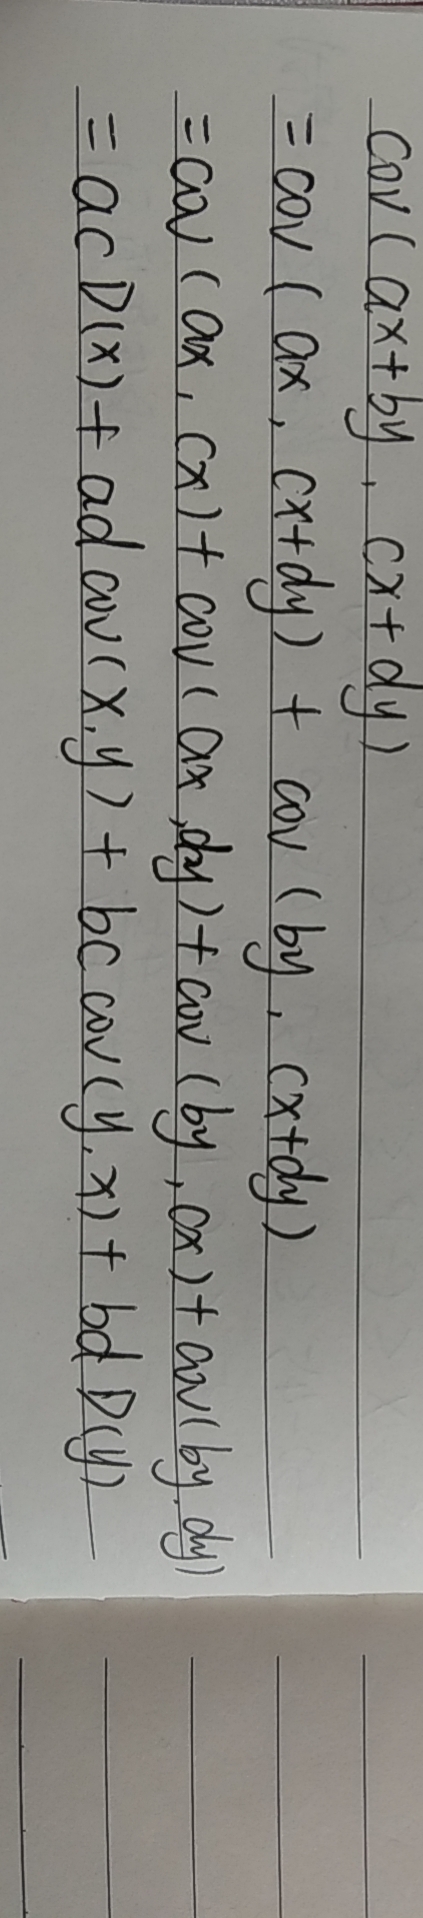 cov(ax+by, cx+dy)
=cov(ax, cx+dy) + cov(by, cx+dy)
=cov(ax, cx)+cov(ax,dy)+cov(by,cx)+cov(by,dy)
=acD(x)+adcov(x,y)+bccov(y,x)+bdD(y)